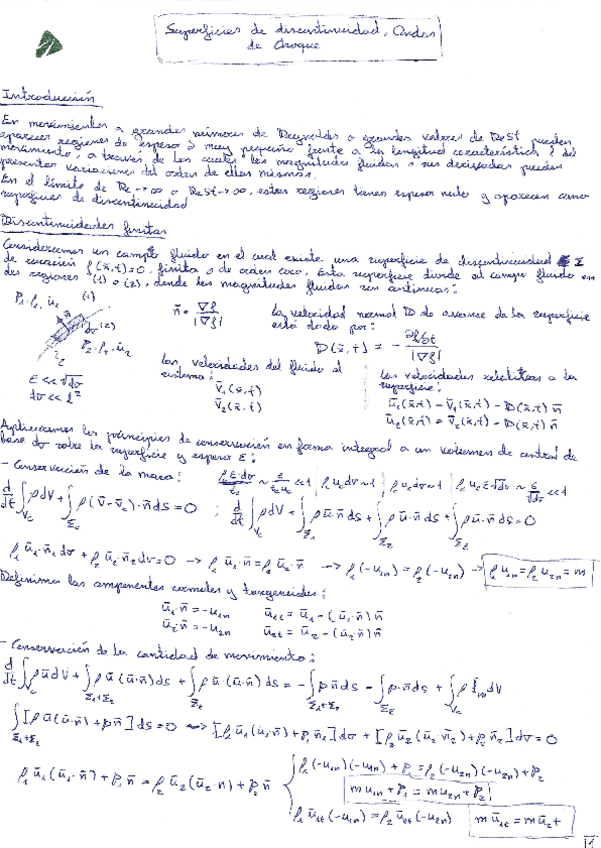 Superficies de discontinuidad, Ondas
de Choque
Introducción
En movimientos a grandes números de Reynolds o grandes valores de ReSt pueden
aparecer regiones de espesor δ muy pequeño frente a la longitud característica l del
movimiento, a través de las cuales las magnitudes fluidas o sus derivadas puedan
presentar variaciones del orden de ellas mismas.
En el límite de Re→∞ o ReSt→∞, estas regiones tienen espesor nulo y aparecen como
superficies de discontinuidad
Discontinuidades finitas
Consideramos un campo fluido en el cual existe una superficie de discontinuidad Σ
de ecuación f(x̄,t)=0, finita o de orden cero. Esta superficie divide al campo fluido en
dos regiones (1) o (2), donde las magnitudes fluidas son continuas:
P₁, ρ₁, ū₁ (1)
n̄ = ∇f / |∇f|
La velocidad normal D de avance de la superficie
está dada por:
dσ (2)
P₂, ρ₂, ū₂
D(x̄,t) = - ∂f/∂t / |∇f|
Las velocidades del fluido al
sistema:
v̄₁(x̄,t)
v̄₂(x̄,t)
Las velocidades relativas a la
superficie:
ū₁(x̄,t) = v̄₁(x̄,t) - D(x̄,t) n̄
ū₂(x̄,t) = v̄₂(x̄,t) - D(x̄,t) n̄
ε << √dσ
dσ << l²
Aplicaremos los principios de conservación en forma integral a un volumen de control de
base dσ sobre la superficie y espesor ε:
- Conservación de la masa:
d/dt ∫Vc ρdV + ∫Σc ρ(v̄-v̄c)·n̄ds = 0 ; d/dt ∫Vc ρdV + ∫Σ₁ ρū·n̄ds + ∫Σ₂ ρū·n̄ds + ∫Σε ρū·n̄ds = 0
ρ₁ū₁·n̄₁dσ + ρ₂ū₂·n̄₂dσ = 0 → ρ₁ū₁·n̄ = ρ₂ū₂·n̄ → ρ₁(-u₁n) = ρ₂(-u₂n) → ρ₁u₁n = ρ₂u₂n = m
Definimos las componentes normales y tangenciales:
ū₁·n̄ = -u₁n ū₁t = ū₁ - (ū₁·n̄)n̄
ū₂·n̄ = -u₂n ū₂t = ū₂ - (ū₂·n̄)n̄
- Conservación de la cantidad de movimiento:
d/dt ∫Vc ρūdV + ∫Σ₁+Σ₂ ρū(ū·n̄)ds + ∫Σε ρū·(ū·n̄)ds = - ∫Σ₁+Σ₂ pn̄ds - ∫Σε p·n̄ds + ∫Vc ρf̄m dV
∫Σ₁+Σ₂ [ρū(ū·n̄) + pn̄]ds = 0 → [ρ₁ū₁(ū₁n̄₁) + p₁n̄₁]dσ + [ρ₂ū₂(ū₂n̄₂) + p₂n̄₂]dσ = 0
ρ₁ū₁(ū₁·n̄) + P₁n̄ = ρ₂ū₂(ū₂·n̄) + P₂n̄
ρ₁(-u₁n)(-u₁n) + P₁ = ρ₂(-u₂n)(-u₂n) + P₂
mu₁n + P₁ = mu₂n + P₂
ρ₁ū₁t(-u₁n) = ρ₂ū₂t(-u₂n)
mū₁t = mū₂t